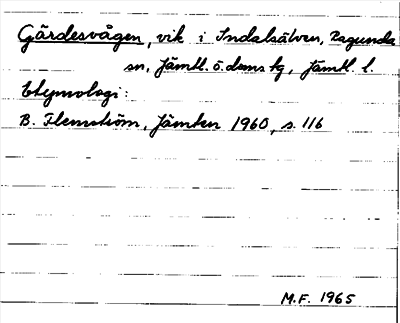 Gärdesvågen, vik i Indalsälven, Ragunda
sn, Jämtl. ö. doms tg, Jämtl. l.
Etymologi:
B. Flemström, Jämten 1960, s. 116
M.F. 1965